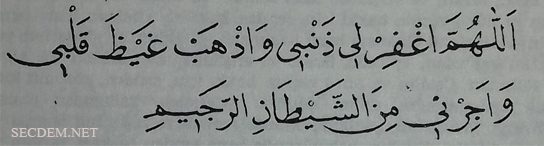 اَللّٰهُمَّ اغْفِرْ لِي ذَنْبِي وَاذْهَبْ غَيْظَ قَلْبِي
وَاَجِرْنِي مِنَ الشَّيْطَانِ الرَّجِيمِ
SECDEM.NET